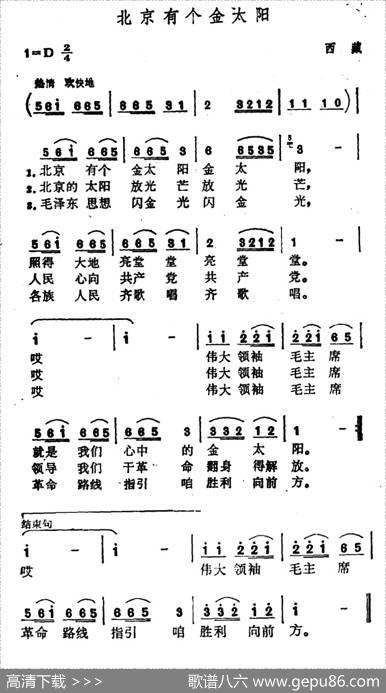 北京有个金太阳
1=D 2/4
西藏
热情 欢快地
(561̇ 665 | 665 31 | 2 3212 | 11 10)
561̇ 665 | 665 31̇ | 6 6535 | 3 -
1.北京 有个 金太 阳 金 太 阳,
2.北京的 太阳 放光 芒 放 光 芒,
3.毛泽东 思想 闪金 光 闪 金 光,
561̇ 665 | 665 31 | 6 3212 | 1 -
照得 大地 亮堂 堂 亮 堂 堂。
人民 心向 共产 党 共 产 党。
各族 人民 齐歌 唱 齐 歌 唱。
1̇ - | 1̇ - | 1̇1̇ 2̇2̇1̇ | 2̇2̇1̇ 65
哎 伟大 领袖 毛主 席
哎 伟大 领袖 毛主 席
哎 伟大 领袖 毛主 席
561̇ 665 | 665 3 | 33 2312 | 1 -
就是 我们 心中 的 金 太 阳。
领导 我们 干革 命 翻身 得解 放。
革命 路线 指引 咱 胜利 向前 方。
结束句
1̇ - | 1̇ - | 1̇1̇ 2̇2̇1̇ | 2̇2̇1̇ 65
哎 伟大 领袖 毛主 席
561̇ 665 | 665 3 | 33 2312 | 1 -
革命 路线 指引 咱 胜利 向前 方。
高清下载 >>>
歌谱八六 www.gepu86.com